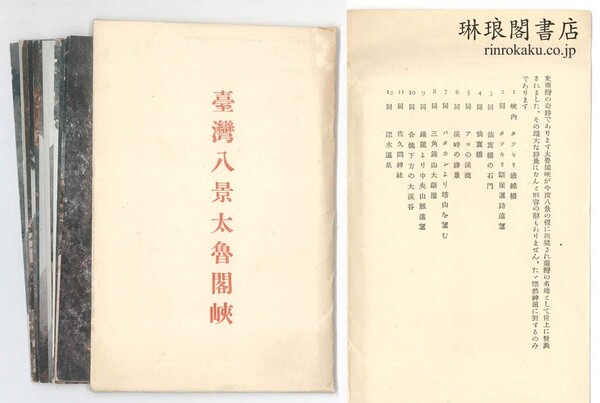 臺灣八景太魯閣峽
琳琅閣書店
rinrokaku.co.jp
東臺灣の奇勝であります太魯閣峽が今度八景の一に推奬され臺灣の名地として世上に發表
されました、その雄大な勝景はなんと形容の辭もありません、たゞ悽然神祕に對するのみ
であります
1 峽內 タツキリ鐵線橋
2 同 タツキリ斷崖道路遠望
3 同 仙寰橋の石門
4 同 仙寰橋
5 同 アヨの溪流
6 同 溪畔の勝景
7 同 バタカンより塔山を望む
8 同 三角錐山大斷崖
9 同 鐵麓より中央山脈遠望
10 同 合流下方の大溪谷
11 同 佐久間神社
12 同 深水溫泉